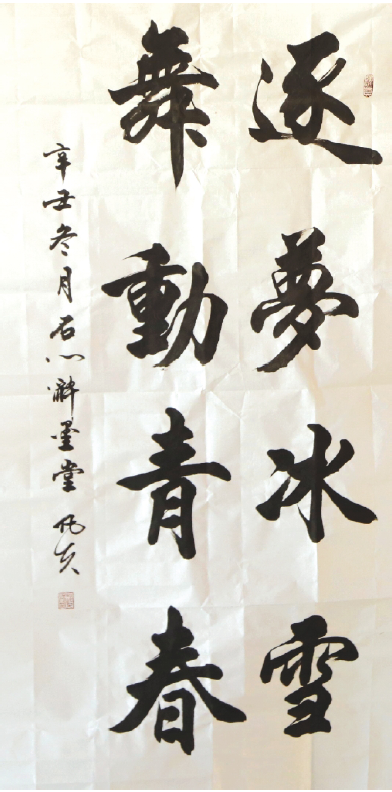 逐夢冰雪
舞動青春
辛丑冬月石心醉墨堂